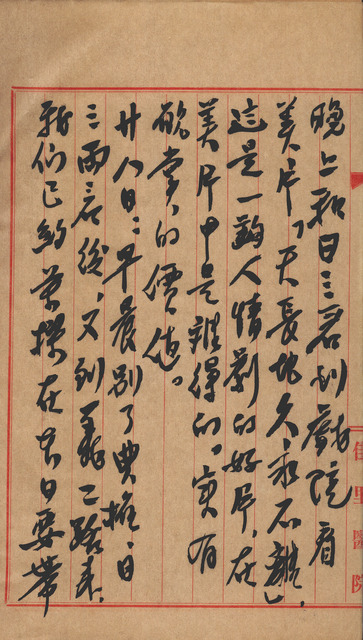 晚上和日三君到戲院看
美片「天長地久永不離」，
這是一齣人情劇的好片，在
美片中是難得的，實有
欣賞的價值。
廿八日：早晨別了典雄、日
三兩君後，又到 二路去，
我們已約 在 日要帶
佳里醫院